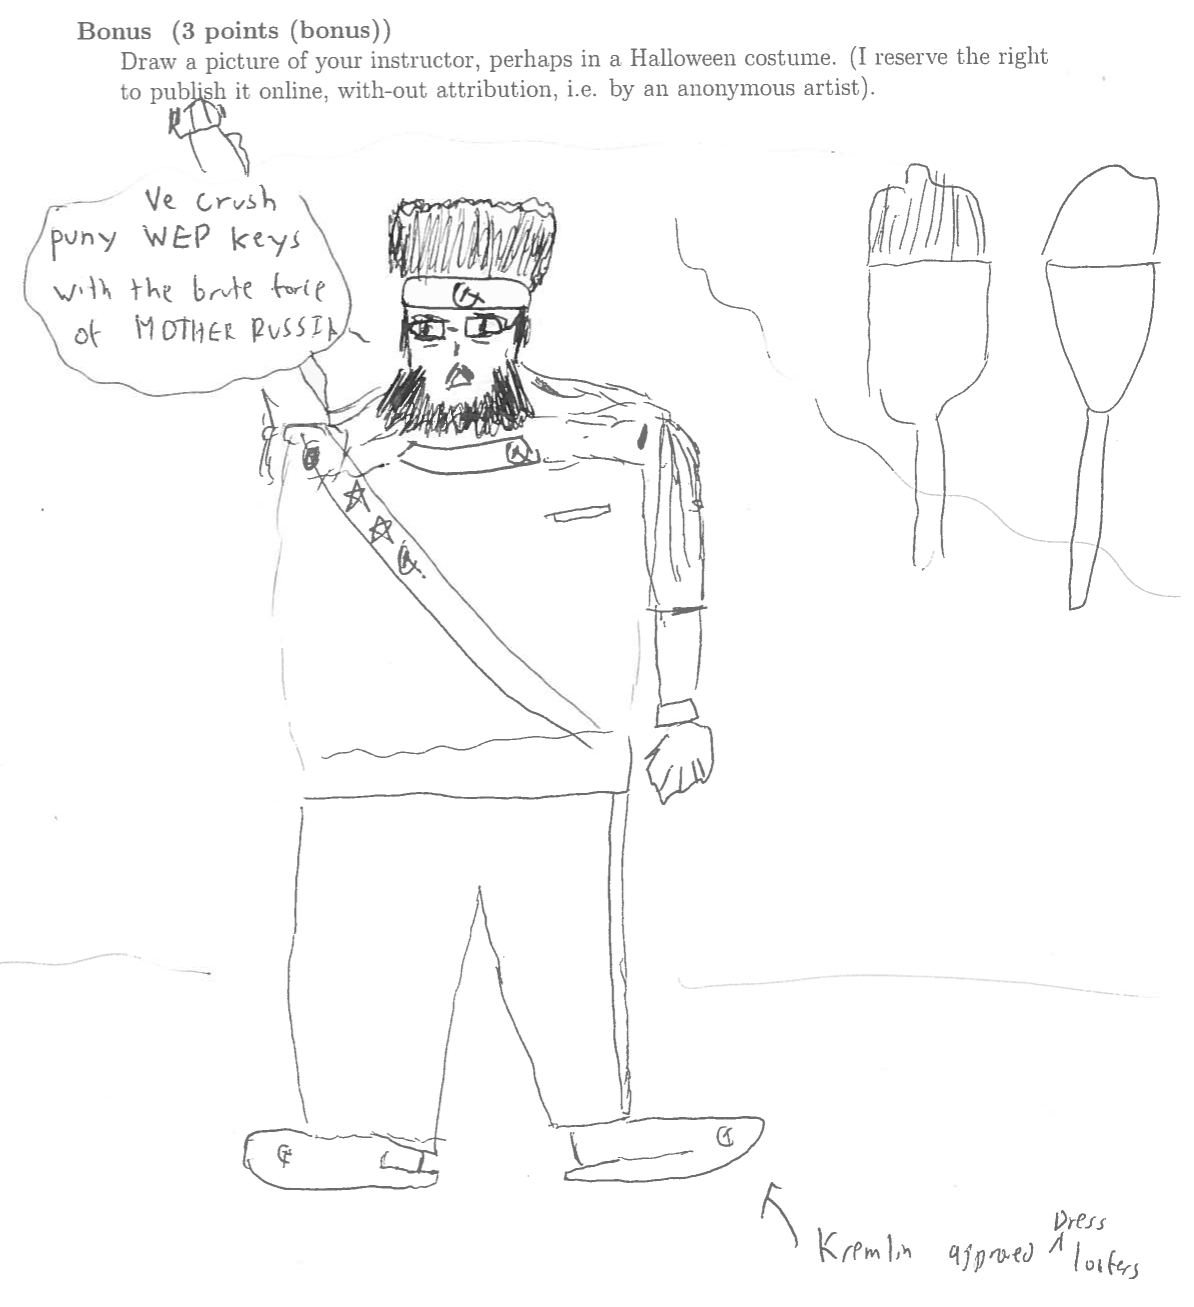 Bonus (3 points (bonus))
Draw a picture of your instructor, perhaps in a Halloween costume. (I reserve the right
to publish it online, with-out attribution, i.e. by an anonymous artist).
Ve crush
puny WEP keys
with the brute force
of MOTHER RUSSIA
Dress
Kremlin approved ^ loafers